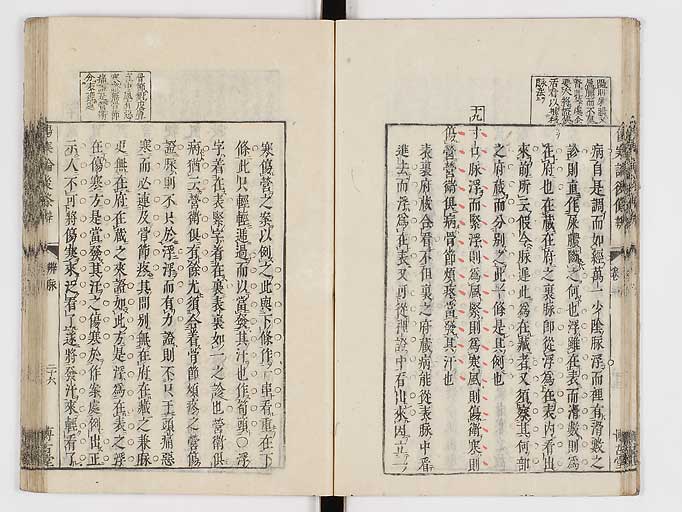 十九
病自是調而如經萬一少陰脉浮而裡有滑數之
診則直作屎膿斷之何也浮雖在表而滑數則爲
在府也在藏在府之裏脉即從浮爲在表內看出
來前所云假令脉遲此爲在藏者又須察其何部
之府藏而分別之此十條是其例也
寸口脉浮而緊浮則爲風緊則爲寒風則傷衛寒則
傷營營衛俱病骨節煩疼當發其汗也
表裏府藏合看不但裏之府藏病能從表脉中看
進去而浮爲在表又可從裡證中看出來因
寒傷營之案以例之此與下條作一串看重在下
條此只輕輕遞過而以當發其汗也作筍頭浮
字着在表緊字着在裏表裏如一之診也營衛俱
病猶云營衛俱有餘尤須合看骨節煩疼之營傷
證脉則不只於浮浮而有力證則不只于頭痛惡
寒而必連及骨節疼其間別無在府在藏之兼脉
更無在府在藏之來證如此方是浮爲在表之浮
在傷寒方是當發其汗之傷寒於作案處例出正
示人不可將傷寒來泛看了遂將發汗來輕看了
辨脉
二十六